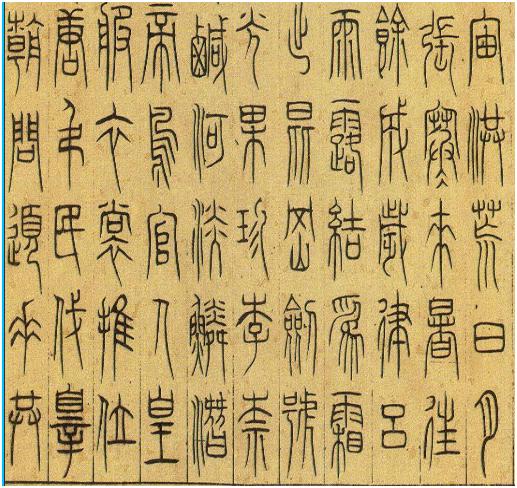 宙洪荒日月
張寒來暑往
餘成歲律呂
雨露結為霜
出昆岡劍號
光果珍李柰
鹹河淡鱗潛
帝鳥官人皇
服衣裳推位
唐弔民伐辠
朝問道垂共